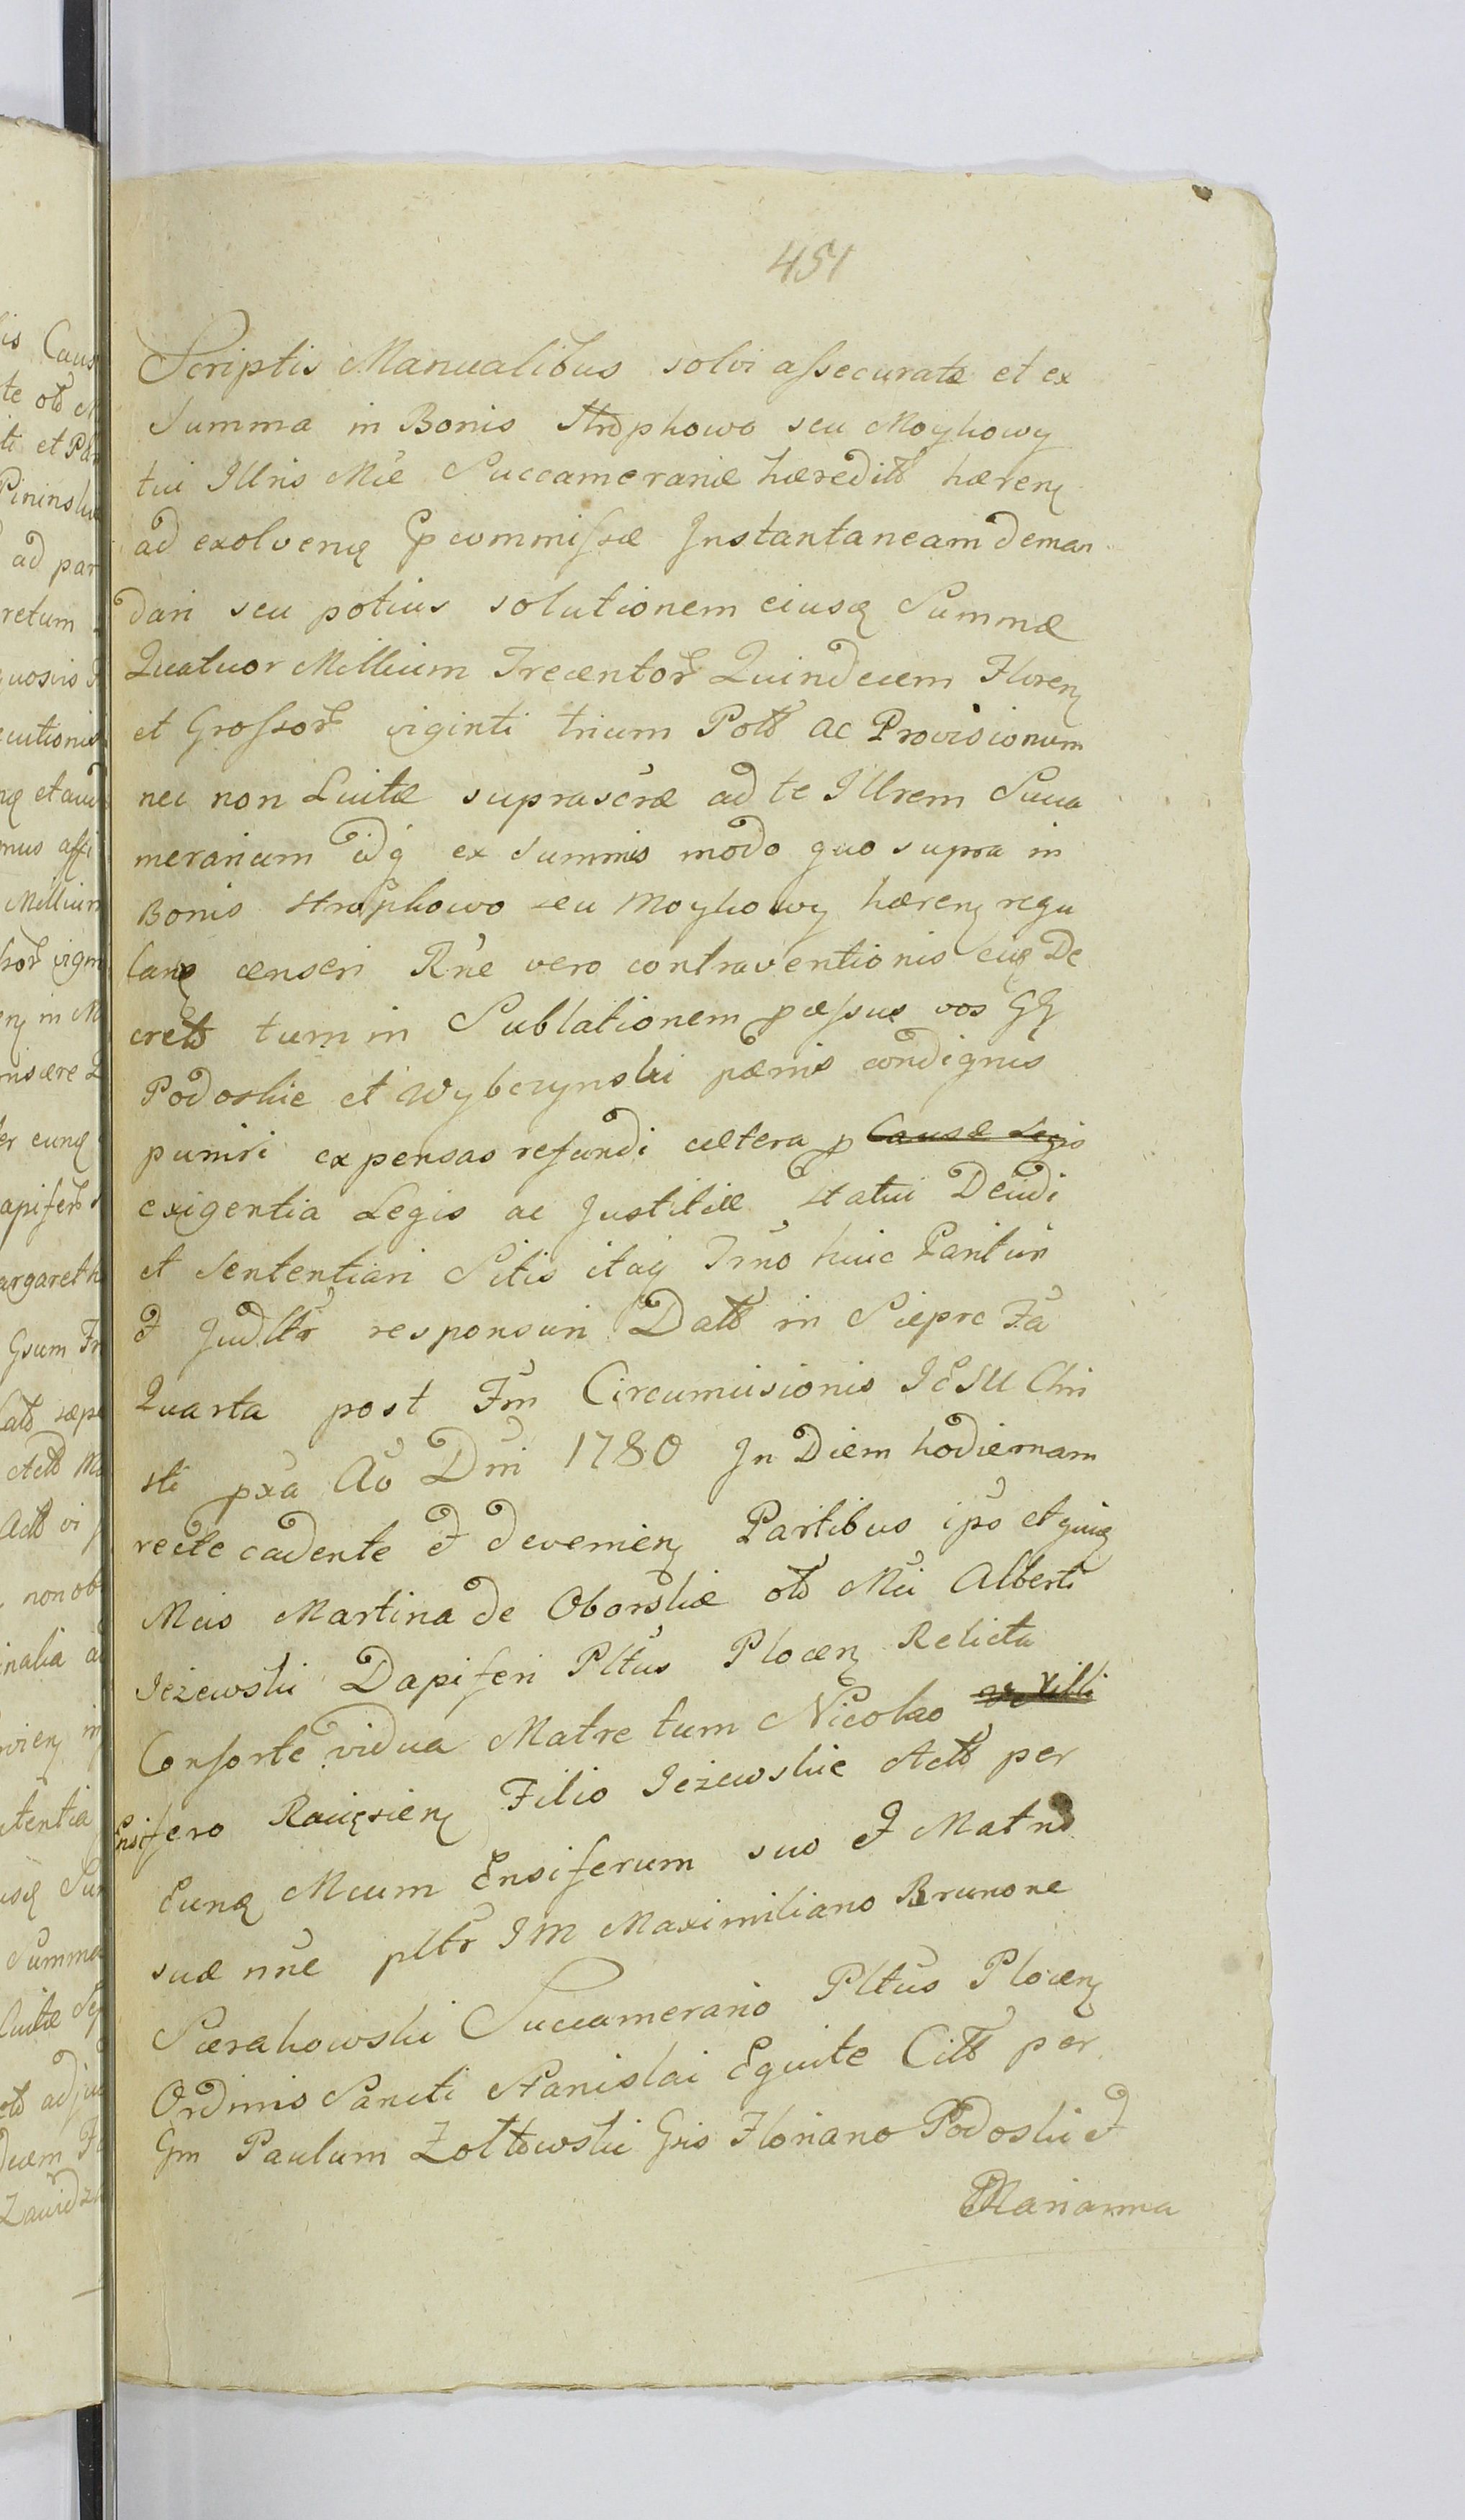 451
Scriptis Manualibus solvi assecuratæ et ex
Summa in Bonis Stropkowo seu Moykowy
tui Illris Mie Succamerariæ hæredittæ hæren
ad exolvenq commissæ Instantaneam deman
dari seu potius solutionem eiusq Summæ
Quatuor Millium Trecentor Quindecem Floren
et Grossor viginti trium Poll ac Provisionum
nec non Luitæ suprascræ ad te Illrem Succa
merarium idq ex Summis modo quo supra in
Bonis Stropkowo seu Moykowy hæren regu
lanq censeri Rne vero contraventionis eiq De
cretto tum in Sublationem passus vos GG
Podoskie et Wybczynski pænis condignis
puniri expensas refundi cætera p Causæ Legis
exigentia Legis ac Justitiæ statui Decidi
et Sententiari Sitis itaq Trno huic Parituri
& Judltr responsuri Datt in Sieprc Fa
Quarta post Fm Circumcisionis IESU Chri
sti pxa Ao Dni 1780 In Diem hodiernam
recte cadente & devenien Partibus ipo et quiq
Mcis Martina de Oborskie olt Mci Alberti
Jeżewski Dapiferi Pltus Plocen Relicta
Consorte vidua Matre tum Nicolao vexilli
Ensifero Raciązien Filio Jeżewskie Actt per
Eunq Mcum Ensiferum suo & Matris
suæ nne pltr IM Maximiliano Brunone
Sierakowski Succamerario Pltus Plocen
Ordinis Sancti Stanislai Equite Citt per
Gm Paulum Zołtowski Gsis Floriano Podoski &
Marianna